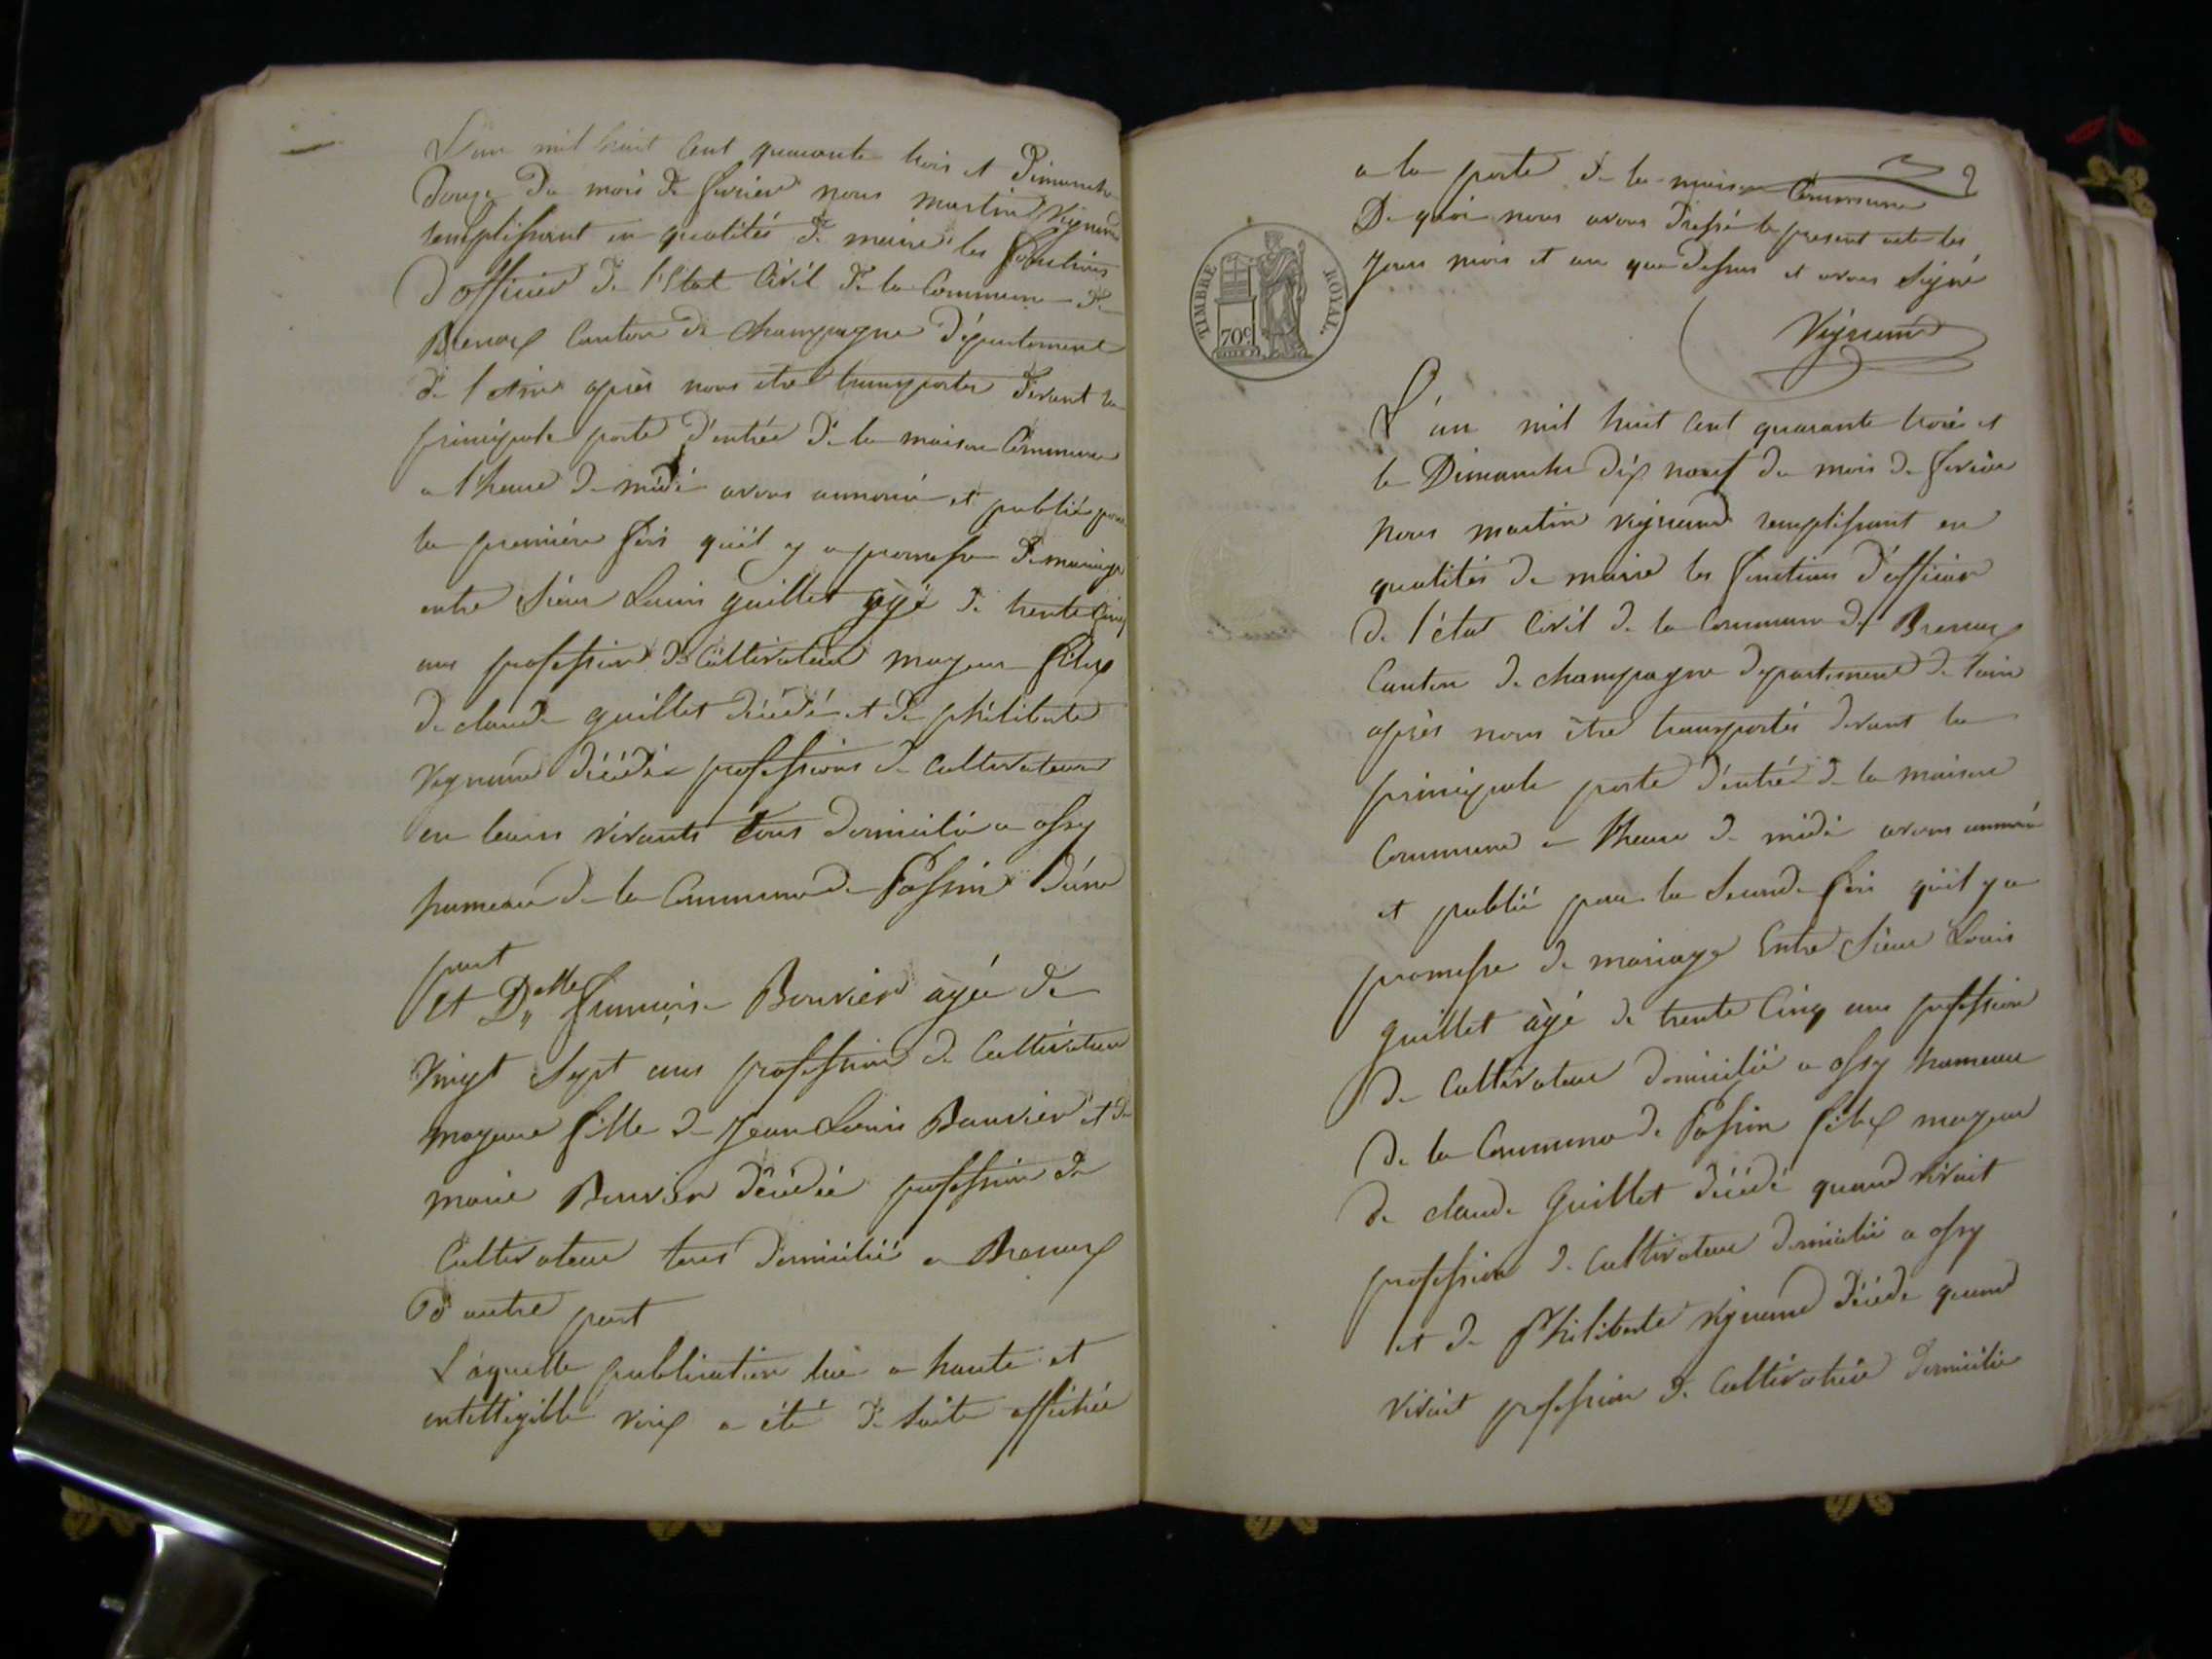 L'an mil huit cent quarante trois et Dimanche
Douze Du mois De fevrier nous martin Vignand
remplissant en qualités De maire les fonctions
D'officier De l'Etat Civil De la Commune De
Brenaz Canton De champagne Département
De l'Ain après nous être transportés Devant la
principale porte D'entrée De la maison Commune
a l'heure De midi avons annoncé et publié pour
la première fois qu'il y a promesse De mariage
entre Sieur Louis guillet âgé De trente Cinq
ans profession De Cultivateur mageur fils
De claude guillet Décédé et De philiberte
Vignand Décédée professions De Cultivateurs
en leurs vivants tous Domicilié a ossy
hameau De la Commune De Passin D'une
part
Et Delle françoise Bouvier âgée De
Vingt Sept ans profession De Cultivateur
mageure fille De Jean Louis Bouvier et De
marie Bouvier Décédée profession De
Cultivateur tous Domicilié a Brenaz
D'autre part
Laquelle publication lue a haute et
entelligible voix a été De Suite affichée
a la porte De la maison Commune
2
De quoi nous avons Dressé le present acte les
Jours mois et an que Dessus et avons Signé
TIMBRE ROYAL.
70c
Vignand
L'an mil huit Cent quarante trois et
le Dimanche Dix neuf Du mois De fevrier
Nous martin vignand remplissant en
qualités De maire les fonctions D'officier
De l'état Civil De la Commune De Brenaz
Canton De champagne Departement De l'ain
après nous être transportés Devant la
principale porte D'entrée De la maison
Commune a l'heure De midi avons annoncé
et publié pour la Seconde fois qu'il y a
promesse De mariage Entre Sieur Louis
guillet âgé De trente Cinq ans profession
De Cultivateur Domicilié a ossy hameau
De la Commune De Passin fils mageur
De claude Guillet Décédé quand vivait
profession De Cultivateur Domicilié a ossy
et De Philiberte vignand Décédé quand
vivait profession De Cultivatrice Domicilié